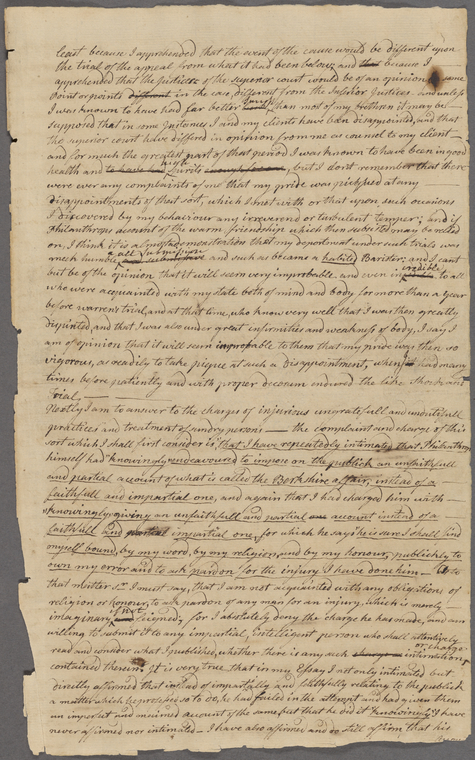 least because I apprehended that the event of the cause would be different upon
the trial of the appeal from what it had been below, and that because I
apprehended that the Justices of the superior court would be of an opinion some
point or points different in the case, different from the Inferior Justices. and unless
I was known to have had far better than most of my Brethren it may be
supposed that in some Instances I and my clients have been disappointed, and that
the superior court have differd in opinion from me as councel to my client
and for much the greatest part of that period I was known to have been in good
health and to have had high spirits, but I dont remember that there
were ever any complaints of me that my pride was picqued at any
disappointments of that sort, which I met with or that upon such occasions
I discovered by my behaviour any irreverend or turbulent temper; and if
Philanthrops account of the warm friendship which then subsisted may be relied
on, I think it is a demonstration that my deportment under such trials was
meek humble, & all submissive and such as became a Barister; and I cant
but be of the opinion that it will seem very improbable and even incredible to all
who were acquainted with my state both of mind and body for more than a year
before warrens trial, and at that time, who know very well that I was then greatly
dispirited, and that I was also under great infirmities and weakness of body, I say I
am of opinion that it will seem improbable to them that my pride was then so
vigorous, as readily to take picque at such a disappointment, when it had many
times before patiently and with proper decorum endured the like shock and
trial,—
Nextly I am to answer to the charges of injurious ungratefull and undutifull
practices and treatment of sundry persons — the complaint and charge of this
sort which I shall first consider is, that I have repeatedly intimated that Philanthrop
himself had knowingly endeavoured to impose on the publick an unfaithfull
and partial account of what is called the Berkshire affair, instead of a
faithfull and impartial one, and again that I had charged him with
knowingly giving an unfaithfull and partial one account instead of a
faithfull and partial impartial one, for which he says he is sure I shall find
myself bound, by my word, by my religion, and by my honour, publickly to
own my error and to ask pardon for the injury I have done him — As to
that matter Sr. I must say, that I am not acquainted with any obligations of
religion or honour, to ask pardon of any man for an injury, which is merely
imaginary and feigned, for I absolutely deny the charge he has made, and am
willing to submit it to any impartial, intelligent person who shall attentively
read and consider what I published, whether there is any such charge or intimations
contained therein. It is very true that in my Essay I not only intimated but
directly affirmed that instead of impartially and faithfully relating to the publick
a matter which he professed so to do, he had failed in the attempt and had given them
an imperfect and account of the same but that he did it knowingly I have
never affirmed nor intimated — I have also affirmed and do still affirm that his